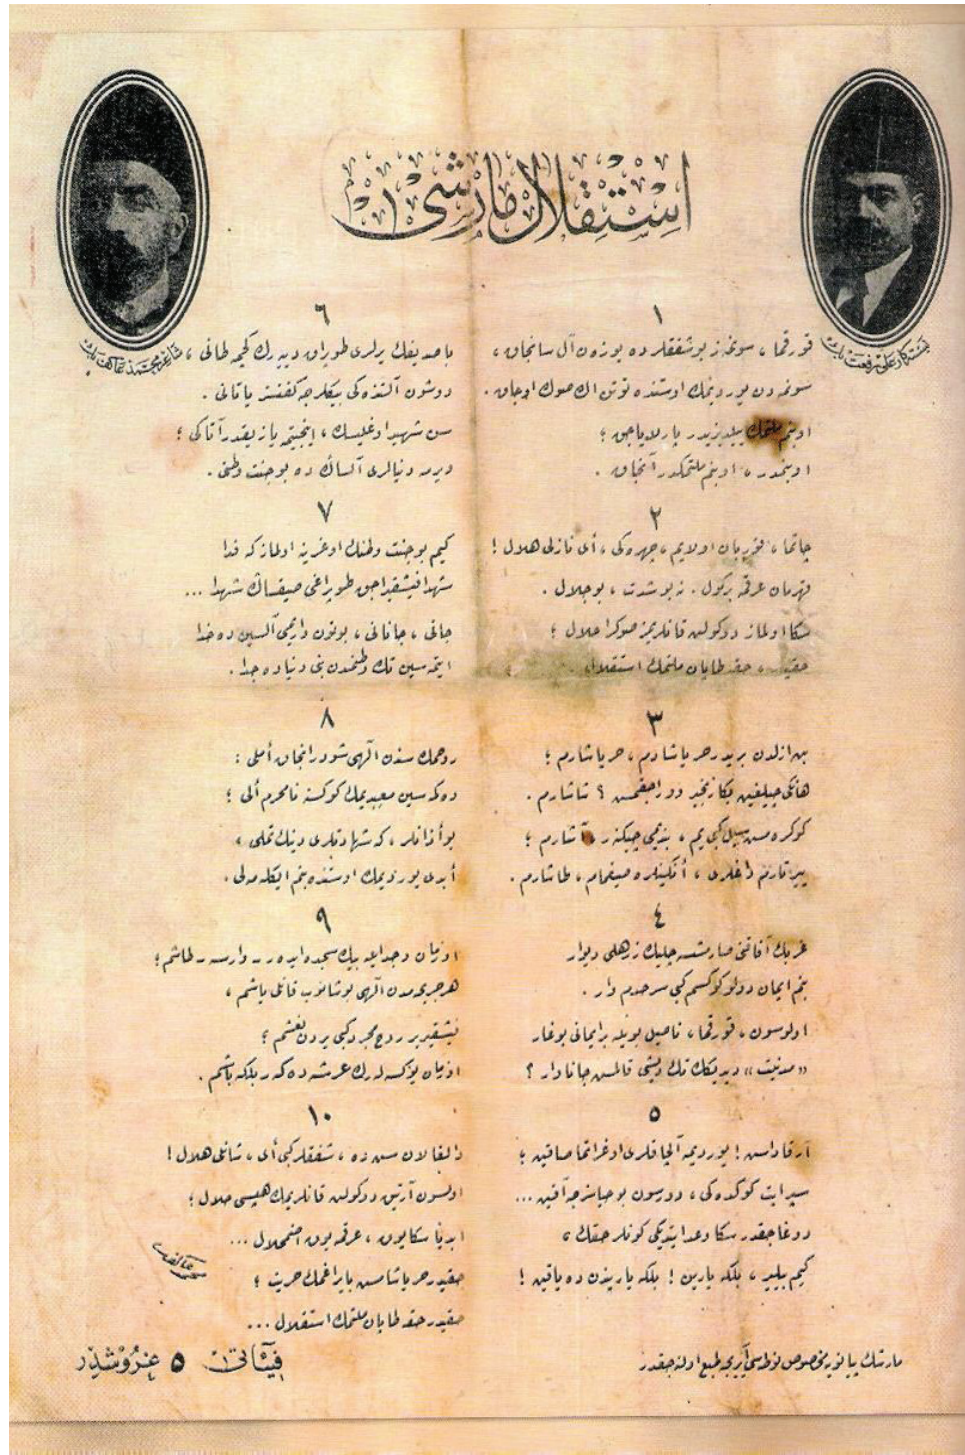 استقلال مارشی
بسته‌كار علی رفعت بك
شاعر محمد عاكف بك
١
قورقما، سونمز بو شفقلرده یوزن آل سانجاق،
سونمه‌دن یوردیمك اوستنده توتن اك صوك اوجاق.
او بنم ملتمك ییلدیزیدر پارلایاجق؛
او بنمدر، او بنم ملتمكدر آنجاق.
٢
چاتما، قوربان اولایم، چهره‌كی، أی نازلی هلال!
قهرمان عرقمه بر كول. نه بو شدت، بو جلال.
سكا اولماز دوكولن قانلریمز صوكرا حلال؛
حقیدر، حقه طاپان ملتمك استقلال.
٣
بن ازلدن بریدر حر یاشادم، حر یاشارم؛
هانكی چیلغین بكا زنجیر ووراجقمش؟ شاشارم.
كوكره‌مش سیل كبی یم، بندیمی چیكنر، آشارم؛
ییرتارم داغلری، أنكینلره صیغمام، طاشارم.
٤
غربك آفاقنی صارمشسه چلیك زرهلی دیوار
بنم ایمان دولو كوكسم كبی سرحدم وار.
اولوسون، قورقما، ناصیل بویله بر ایمانی بوغار
«مدنیت» دیدیكك تك دیشی قالمش جاناوار؟
٥
آرقاداش! یوردیمه آلچاقلری اوغراتما صاقین؛
سپر ایت كوكده‌كی، دورسون بو حیاسزجه آقین...
دوغاجقدر سكا وعد ایتدیكی كونلر حقك،
كیم بیلیر، بلكه یارین! بلكه یاریندن ده یاقین!
٦
باصدیغك یرلری طوپراق دییه‌رك كچمه طانی،
دوشون آلتنده‌كی بیكلرجه كفنسز یاتانی.
سن شهید اوغلیسك، اینجیتمه یازیقدر آتاكی؛
ویرمه دنیالری آلساڭ ده بو جنت وطنی.
٧
كیم بو جنت وطنك اوغرینه اولماز كه فدا
شهدا فیشقیراجق طوپراغی صیقساڭ شهدا...
جانی، جانانی، بوتون واریمی آلسین ده خدا
ایتمه‌سین تك وطنمدن بنی دنیاده جدا.
٨
روحمك سندن الٰهی شودر انجاق أملی:
دكمه‌سین معبدیمك كوكسنه نامحرم ألی؛
بو أذانلر، كه شهادتلری دینك تملی،
أبدی یوردیمك اوستنده بنم ایكله‌ملی.
٩
او زمان وجد ایله بیك سجده ایدر ـ وارسه ـ طاشم؛
هر جریحه‌مدن الٰهی بوشانوب قانلی یاشم،
فیشقیریر روح مجرد كبی یردن نعشم؛
او زمان یوكسله‌رك عرشه دكر بلكه باشم.
١٠
دالغالان سن ده، شفقلر كبی أی، شانلی هلال!
اولسون آرتیق دوكولن قانلریمك هپسی حلال؛
ابدیاً سكا یوق، عرقمه یوق اضمحلال...
حقیدر حر یاشامش بایراغمك حریت؛
حقیدر حقه طاپان ملتمك استقلال...
مارشك پیانویه مخصوص نوطه‌سی آیریجه طبع اولنه‌جقدر
فیئاتی ٥ غروشدر